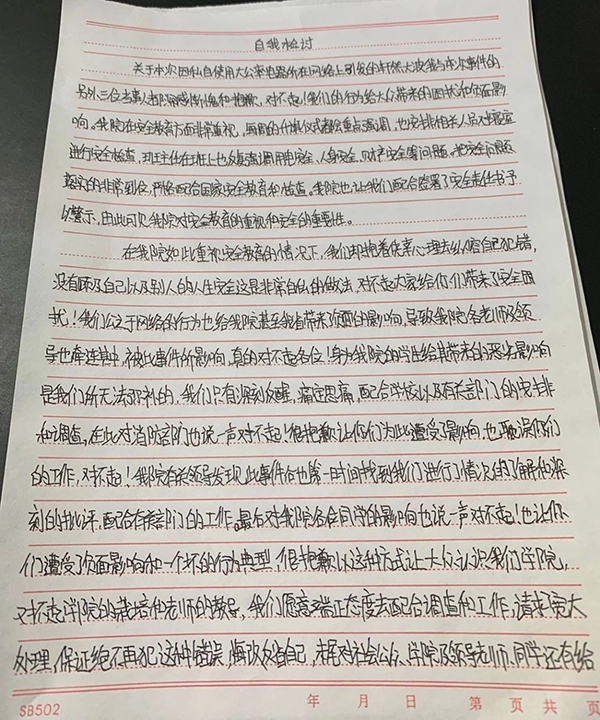 自我检讨
关于本次因私自使用大公率电器所在网络上引发的轩然大波我与本次事件的
另外三位当事人都深感惭愧和抱歉，对不起！我们的行为给大众带来的困扰和负面影
响。我院在安全教育方面非常重视，每周的升旗仪式都会重点强调，也安排相关人员对寝室
进行安全检查，班主任在班上也反复强调用电安全、人身安全、财产安全等问题，把安全问题
落实的非常到位，严格配合国家安全教育和检查。我院也让我们配合签署了安全责任书予
以警示，由此可见我院对安全教育的重视和安全的重要性。
在我院如此重视安全教育的情况下，我们却抱着侥幸心理去纵容自己犯错，
没有顾及自己以及别人的人生安全这是非常自私的做法，对不起大家给你们带来了安全困
扰！我们公之于网络的行为也给我院甚至我省带来负面的影响，导致我院各老师及领
导也牵连其中，被此事件所影响，真的对不起各位！身为我院的学生给其带来的恶劣影响
是我们所无法弥补的，我们只有深刻反醒，痛定思痛，配合学校以及有关部门的安排
和调查，在此对消防部门也说一声对不起！很抱歉让你们为此遭受了影响，也耽误你们
的工作，对不起！我院有关领导发现此事件后也第一时间找到我们进行了情况的了解和深
刻的批评，配合有关部门的工作。最后对我院各位同学的影响也说一声对不起！也让你
们遭受了负面影响和一个坏的行为典型，很抱歉以这种方式让大众认识我们学院，
对不起学院的栽培和老师的教导，我们愿意端正态度去配合调查和工作，请求宽大
处理，保证绝不再犯这种错误，悔改反省自己，未尾对社会公众、学院及领导老师、同学还有给
SB502 年 月 日 第 页 共 页